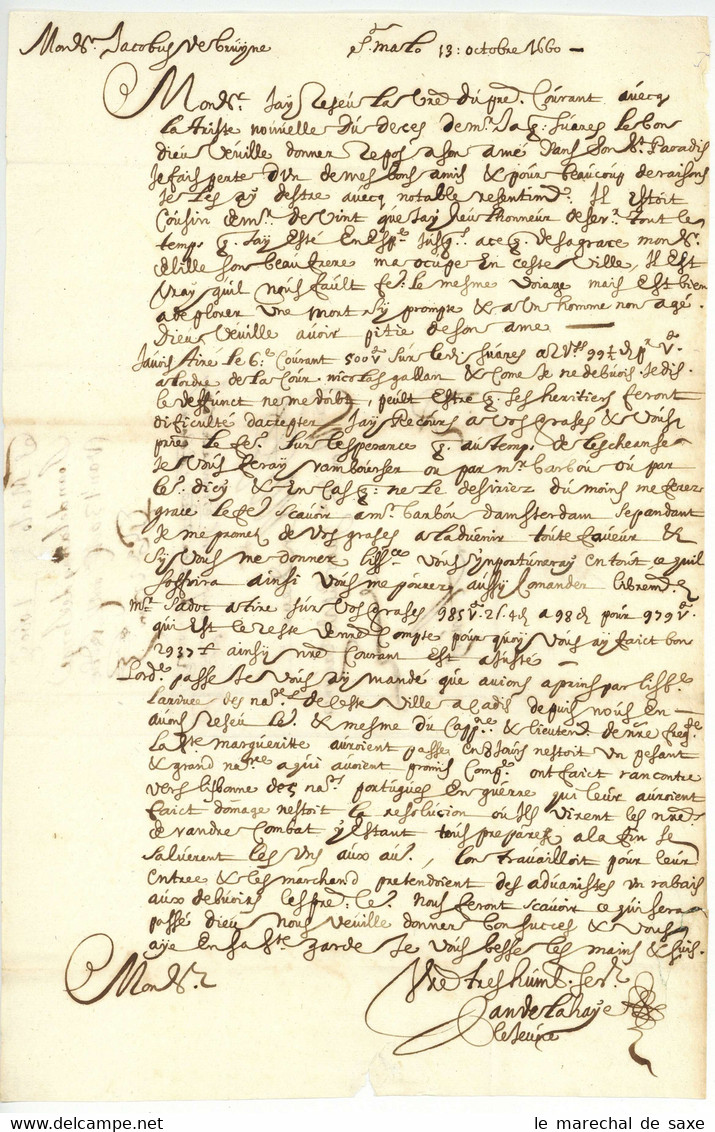 Mons.r Jacobus de bruyne S.t malo 13: octobre 1660 —
Mons.r Jay reseu la vre du pre.d Courant avecq
la triste nouvelle du deces de m.r Suares le bon
dieu veuille donner repos a son ame dans son s.t Paradis
Je fais perte d'un de mes bons amis & pour beaucoup de raisons
Je les ay d'estre avecq notable resentim.t Il estoit
Cousin de m.r de vint que Jay heu l'honneur de ser.r tout le
temps q. Jay esté en Esp.e Jusq. a ce q. de sa grace mons.r
delille son beau frere ma ocupe en ceste ville, Il est
vray quil nous fault fe.r le mesme voiage mais est bien
a deplorer une mort sy prompte & a un homme non agé.
Dieu veuille avoir pitie de son ame —
Javois tiré le 6.e Courant 500 sur led.i Suares a 99
a lordre de la Cour. nicolas gallan & Come Je ne debvois
le deffunct ne me doibt, peult estre q. ses heritiers feront
dificulté d'accepter Jay recours a vos grases & vous
prie le fe.r sur l'esperance q. au temp. de lescheanse
Je vous feray rambourser ou par m.r barbou ou par
le.r dicy & en cas q: ne le desiriez du moins me fe.r
grace le fe.r scavoir a m.r barbou damsterdam sepandant
Je me promet de vos grases a ladvenir toute faveur &
sy vous me donner liss.ce vous ynportuneray en tout ce quil
sosrira ainsi vous me pourrez aussy Comander librem.t
m.r Sadoc a tire sur vos grases 985 a 98 d pour 979
qui est le reste de nre Compte pour quoy vous ay faict bon
2937 ₶ ainsy nre Courant est ajusté
Lord.e passé Je vous ay mande que avions aprins par lisb.e
larivee des na.r de ceste ville a Cadis depuis nous en
avons reseu le.r & mesme du Capp.ne & lieutend de nre freg.e
la s.te margueritte auroient passe en 8 Jours nestoit un pesant
& grand na.re a qui avoient promis Comp.e ont faict rancontre
vers lisbonne de 5 na.r portugues en guerre qui leur auroient
faict domage nestoit la resolucion ou Ils virent les nre.s
de randre Combat y estant tous preparez a la fin se
saluerent les uns aux au., lon travailloit pour leur
entree & les marchand pretendoient des aduanistes un rabais
aux debvoirs les pre.d le.r nous feront scavoir ce qui sera
passé dieu nous veuille donner bon succes & vous
aye en sa s.te garde Je vous besse les mains & suis.
Mons.r
Vre tres humb. ser.r
Jan de la haye
le Jeune
le marechal de saxe